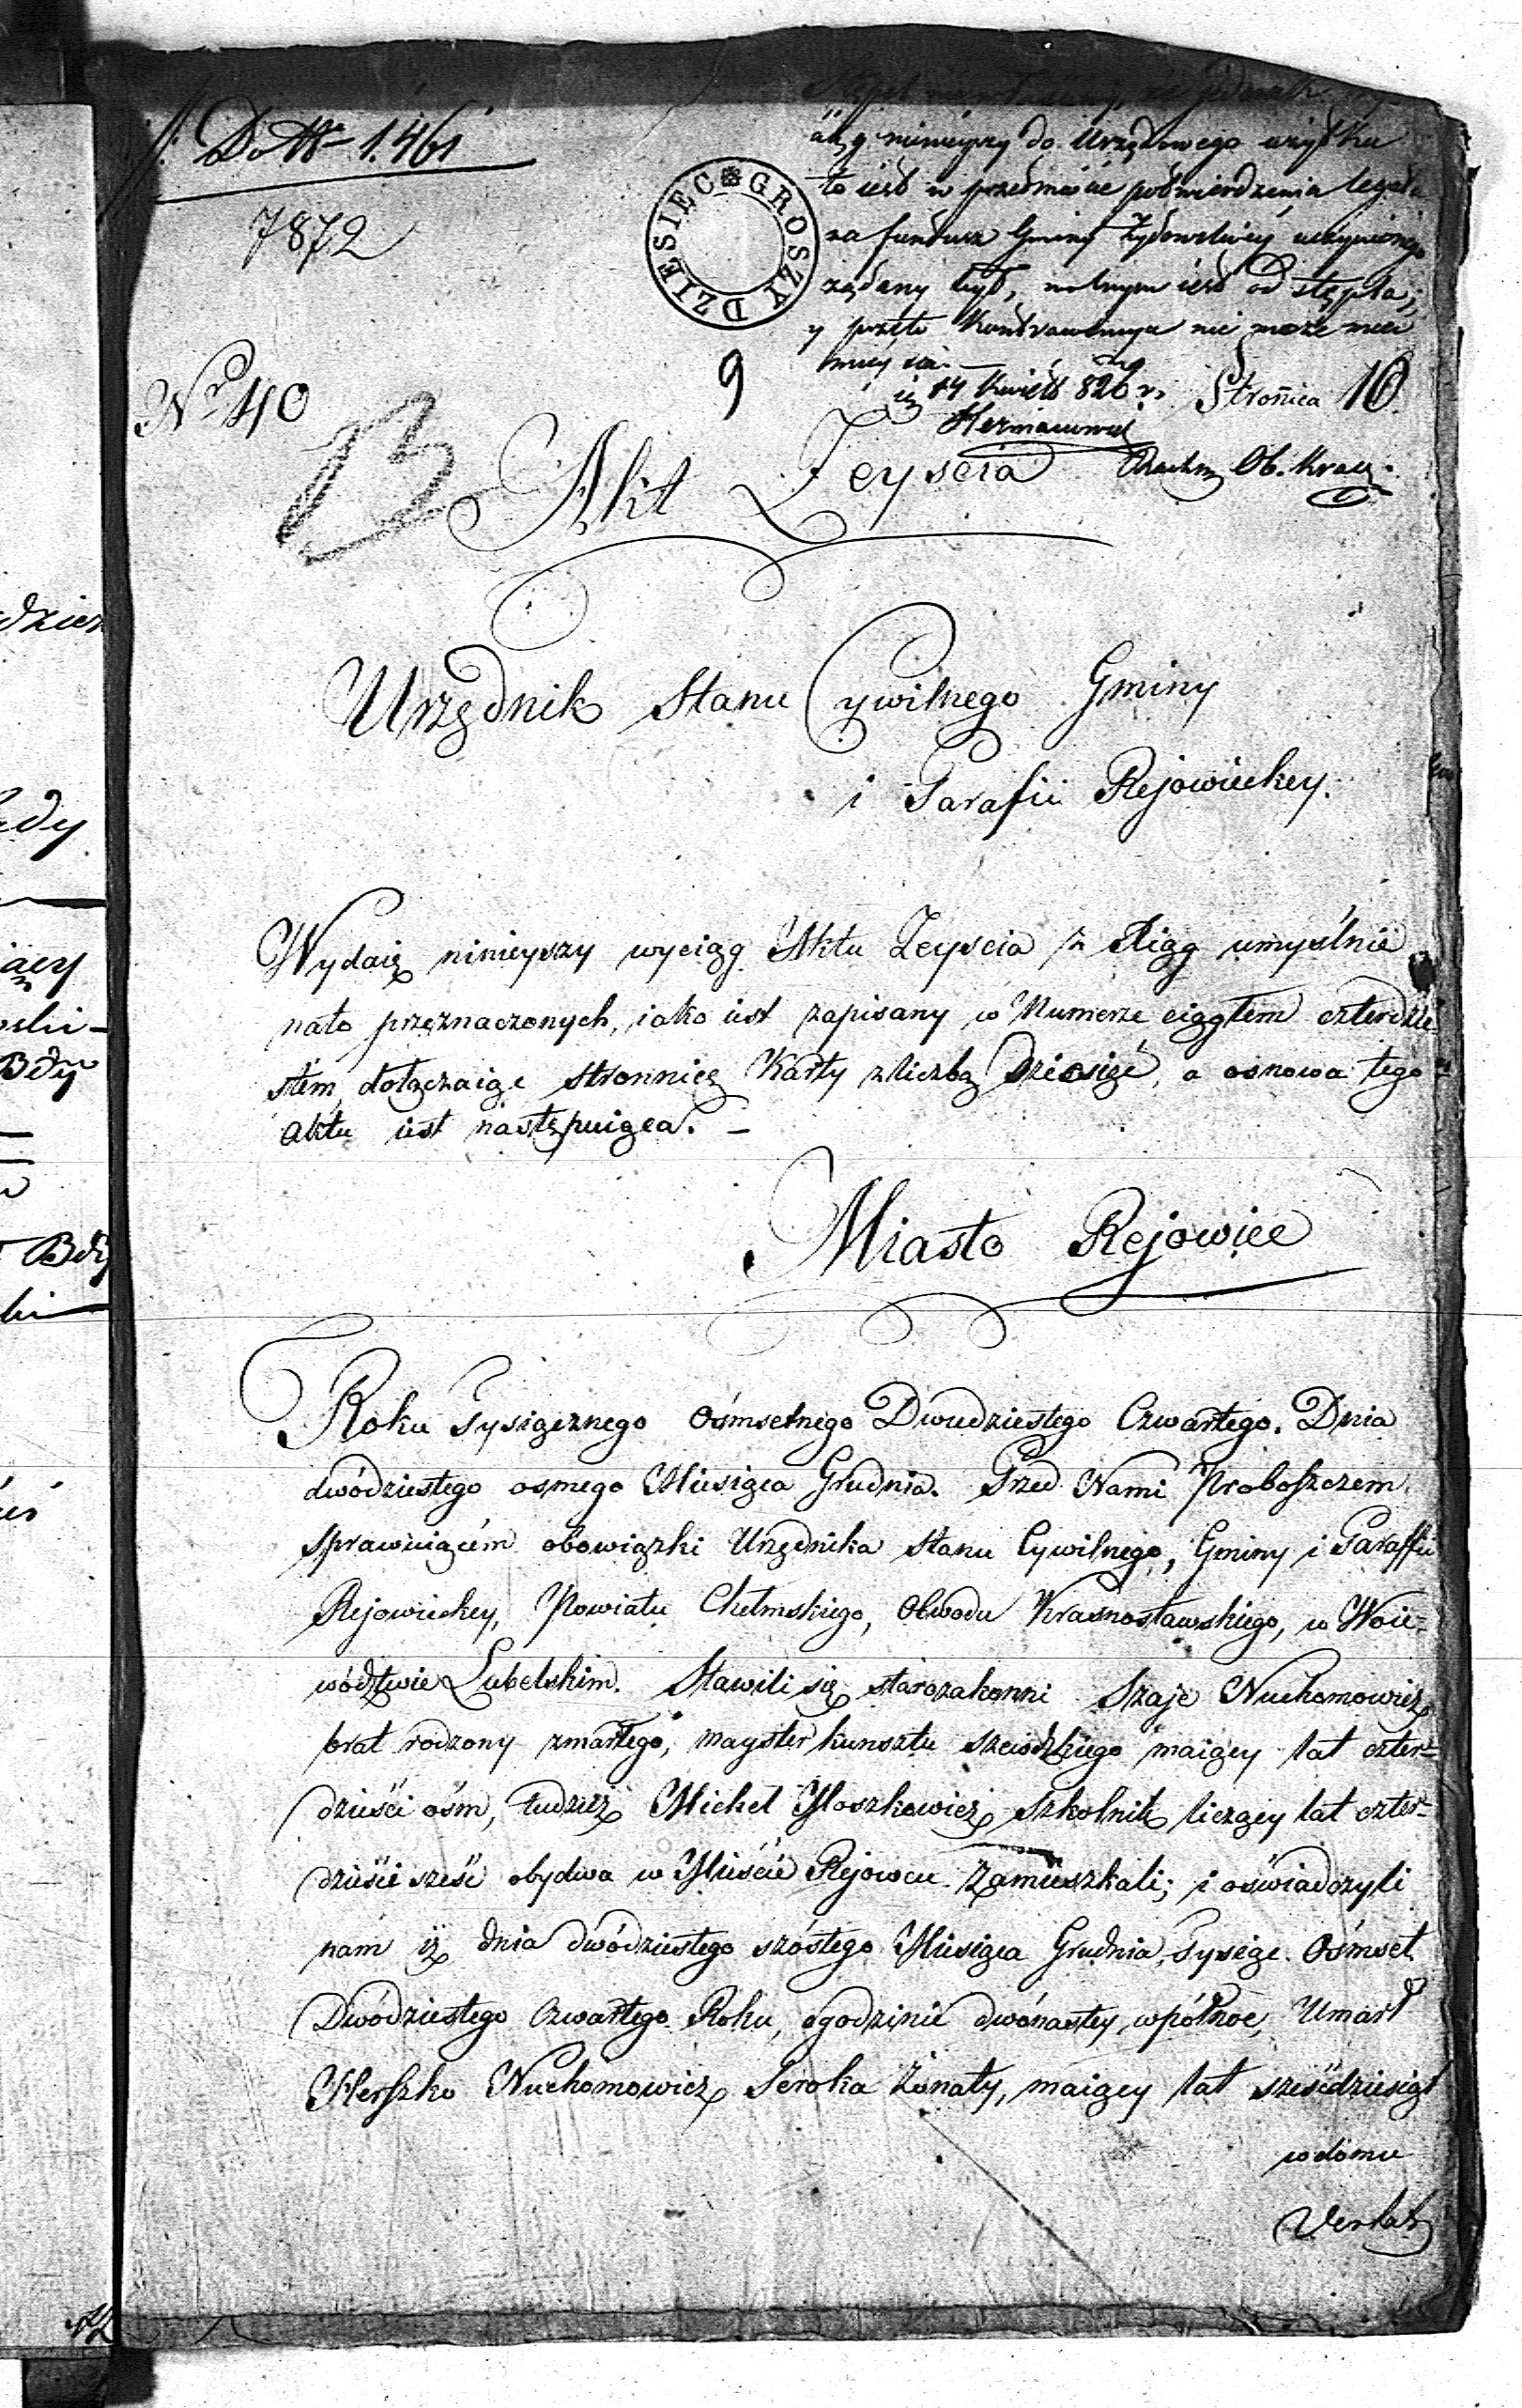 D. N 1461
7872
GROSZY DZIESIEC
do Urzędowego użytku
to iest w przedmiocie potwierdzenia legatu
na fundusz Gminy Żydowskiey uczynionego
żądany był, wolnym iest od stępla;
y przeto nie może mieć
mieysca.
14 kwiet 826 r.
9
Stroñica 10.
Nro 40
B
Akt Zeyscia
Urzędnik Stanu Cywilnego Gminy
i Parafii Rejowieckey.
Wydaię ninieyszy wyciąg Aktu Zeyscia z Xiąg umyślnie
nato przeznaczonych, iako iest zapisany w Numerze ciągłem czterdzie-
stem, dołączaiąc stronnicę Karty zliczbą dziesięć, a osnowa tego
aktu iest następuiąca. –
Miasto Rejowiec
Roku Tysiącznego Ośmsetnego Dwudziestego Czwartego. Dnia
dwódziestego osmego Miesiąca Grudnia. Przed Nami Proboszczem
sprawuiącém obowiązki Urzędnika Stanu Cywilnego, Gminy i Paraffii
Rejowieckey, Powiatu Chełmskiego, Obwodu Krasnostawskiego, w Woie-
wództwie Lubelskim. Stawili się starozakonni Szaje Nuchomowicz
brat rodzony zmarłego, mayster kunsztu maiący lat czter-
dzieści óśm, tudzież Michel Moszkowicz Szkolnik liczący lat czter-
dzieści sześć obydwa w Mieście Rejowcu Zamieszkali; i oświadczyli
nam iż dnia dwódziestego szóstego Miesiąca Grudnia, Tysiąc Ośmset
Dwódziestego Czwartego Roku, ogodzinie dwónastey wpółnoc, Umarł
Herszko Nuchomowicz Seroka Żonaty, maiący lat sześćdziesiąt
wdomu